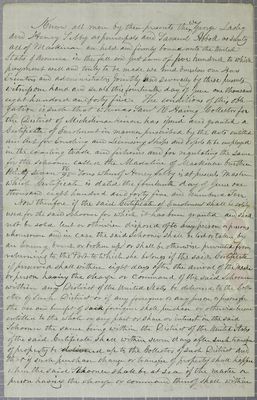 Know all men by these presents that George Lasby
and Henry Libby as principals and Samuel Hook as surety
all of Machias are held and firmly bound unto the United
States of America in the full and just sum of five hundred to which
payment well and truly to be made we bind ourselves our Heirs
Executors and administrators jointly and severally by these presents
witness our hand and seals this fourteenth day of June one thousand
eight hundred and forty five The condition of this Ob-
ligation is such that whereas Collector for
the District of Machias has issued and granted a
Certificate of Enrolment in manner prescribed by the acts entitled
an Act for enrolling and licensing ships and vessels to be employed
in the coasting trade and fisheries and for regulating the same
for the schooner called the Madeline of Machias burthen
Henry Libby is at present Master
which Certificate is dated the fourteenth day of June one
thousand eight hundred and forty five and numbered
Now therefore if the said Certificate of Enrolment shall be solely
used for the said Schooner for which it has been granted and shall
not be sold lent or otherwise disposed of to any person or persons
whomsoever and in case the said Schooner shall be lost or taken by
an Enemy burnt or broken up or shall be otherwise prevented from
returning to the Port to which she belongs if the said Certificate
if preserved shall within eight days after the arrival of the master
or person having the charge or Command of the said Schooner
within any District of the United States be delivered to the Collec-
tor of such District or if any foreigner or any person or persons for
the use and benefit of such foreigner shall purchase or otherwise become
entitled to the whole or any part or share or interest in the said
Schooner the same being within the District of the United States
of the said Certificate shall within seven days after such transfer
of property be delivered up to the Collector of such District and
that if such purchase change or transfer of property shall happen
when the said Schooner shall be at sea if the master or
person having the charge or command thereof shall within